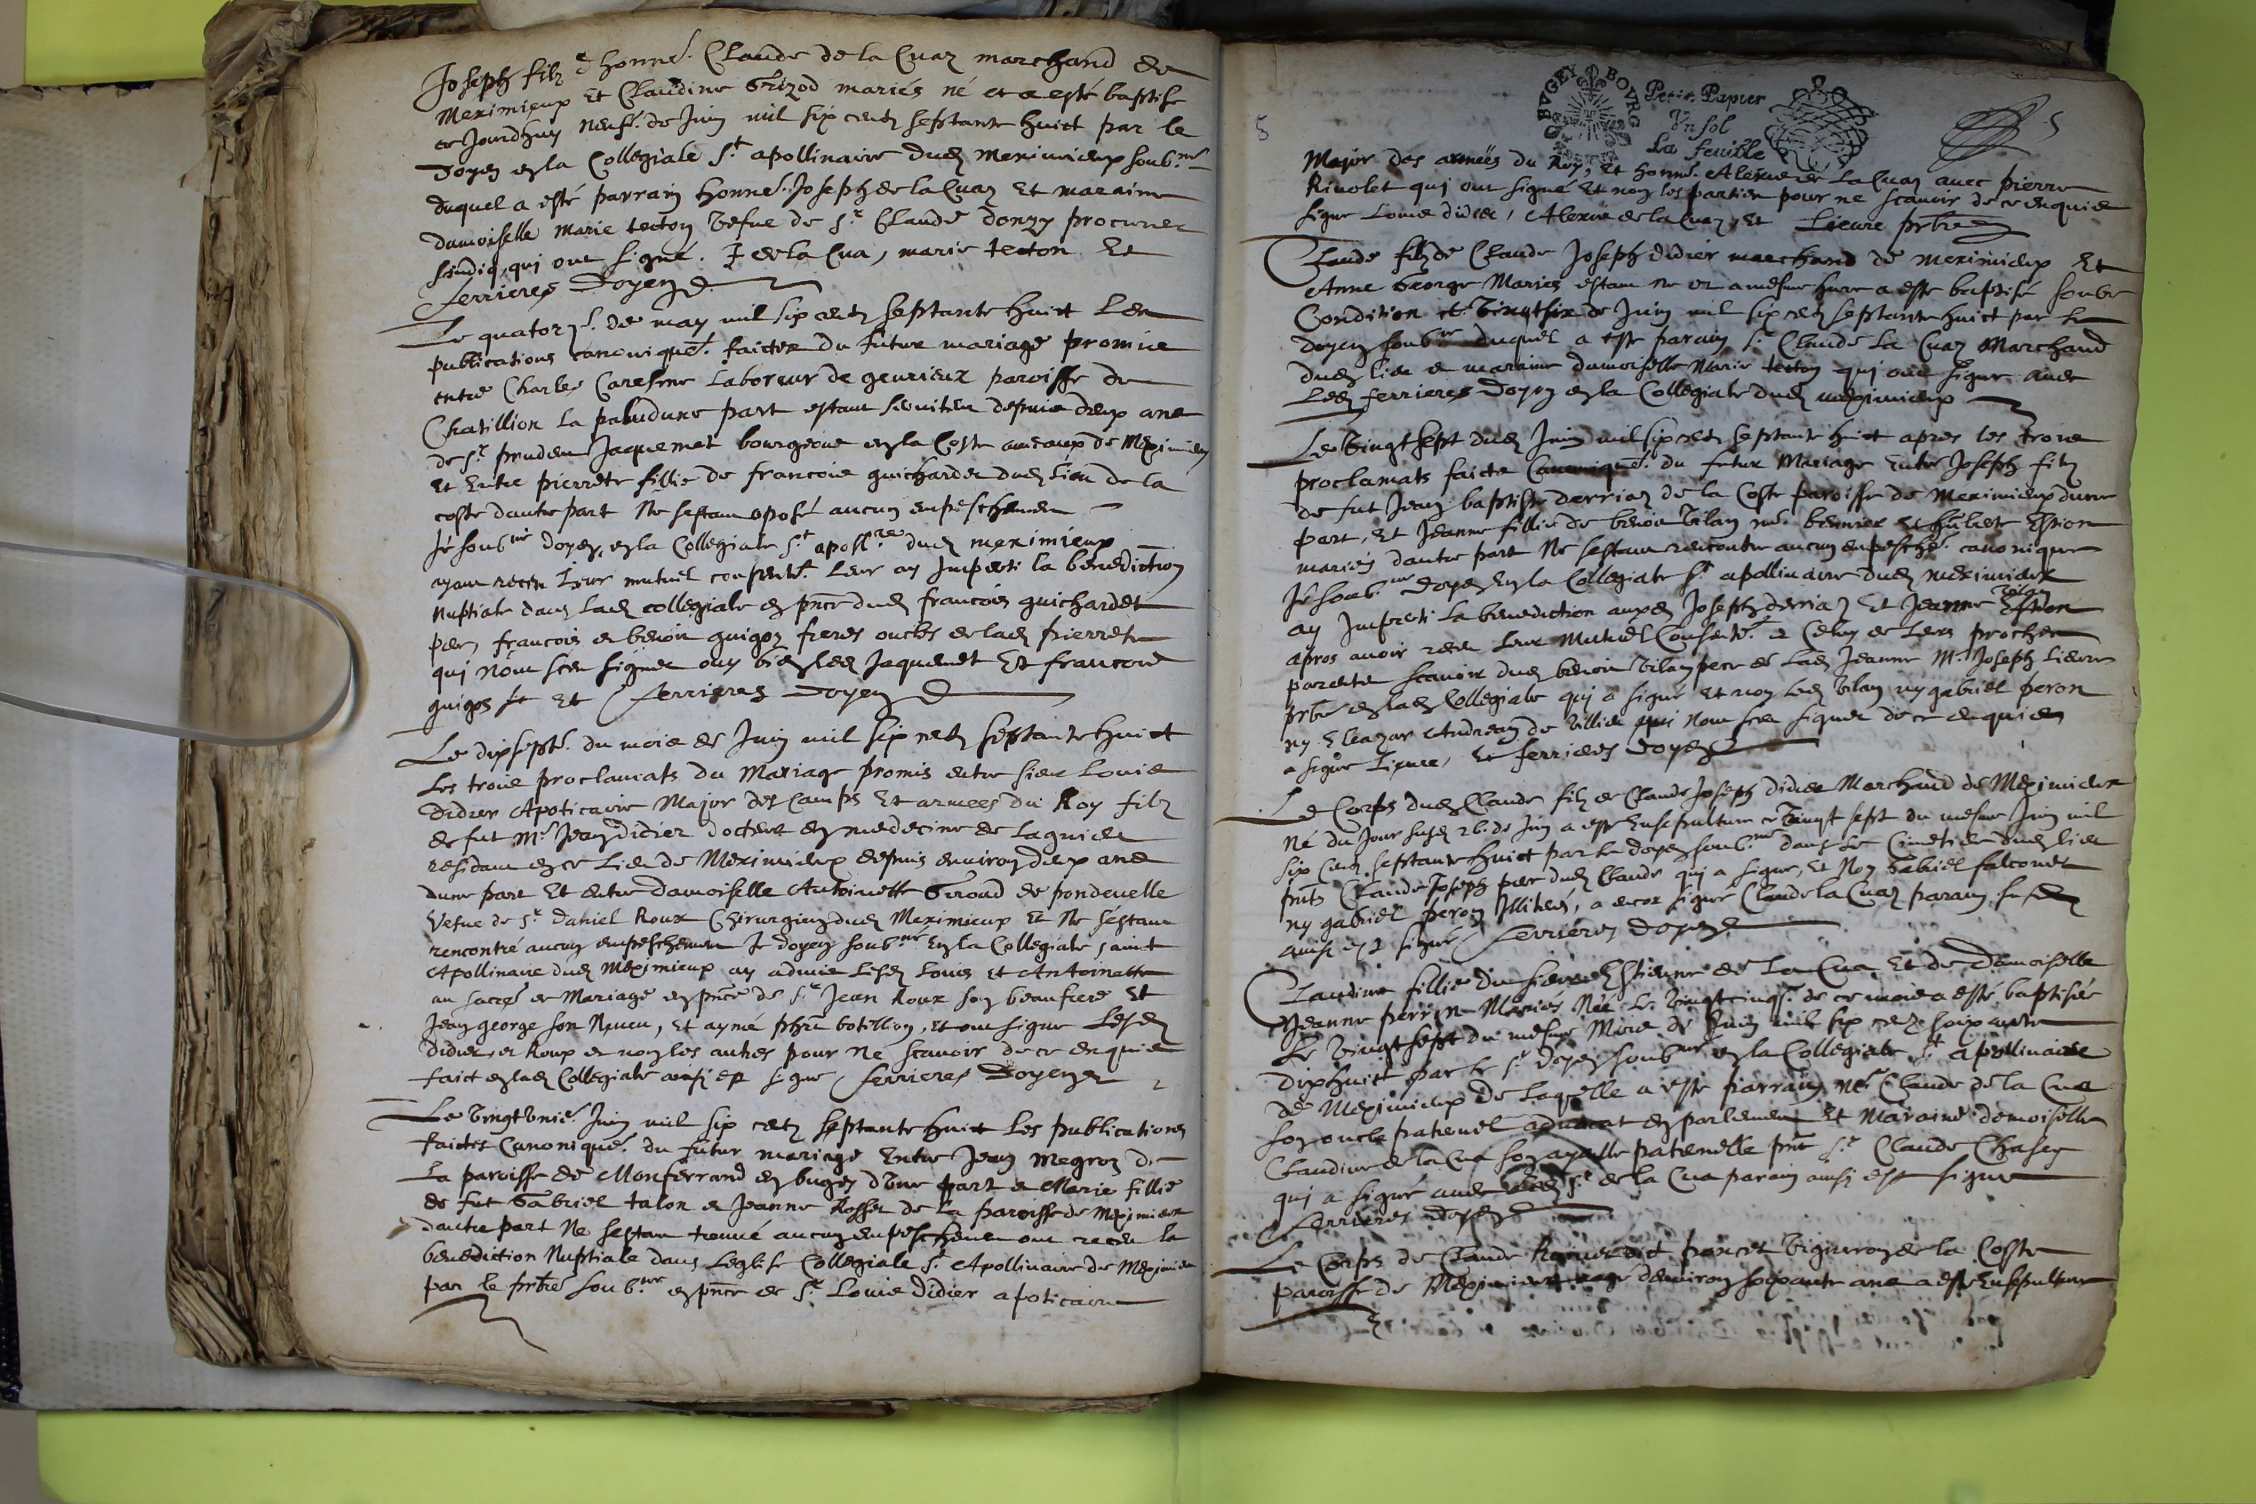 Joseph filz d honne. Claude de la Cuaz marchand de
Meximieux et Claudine Grizod mariés né et a esté baptise
ce Jourdhuy neufe. de Juin mil six centz septante huict par le
doyen en la Collegiale St. apollinaire dud Meximieux soub.né
duquel a esté parrain honne. Joseph de la Cuaz et maraine
damoiselle Marie tecton vefue de Sr. Claude donzy procureur
sindiq, qui ont signé. J de la Cua, marie tecton Et
ferrieres Doyen
Le quatorze. de may mil six centz septante huict Les
publications canonique. faictes du futur mariage promis
entre Charles Caresme Laboreur de genrieux paroisse de
Chatillion la palud dune part estant seruiteur depuis deux ans
de Sr. prudent Jaquemet bourgeois en la Coste aureaux de Meximieux
Et Entre pierrete fillie de francois guichardet dud lieu de la
coste dautre part Ne sestant oposé aucun enpeschement
Je soub.né doyen, en la Collegiale St. apoll.re dud meximieux
ayant receu Leur mutuel consente. Leur ay Imparti la benediction
Nuptiale dans lad collegiale en pnce dud francois guichardet
pere, francois et benoit guigoz freres oncles de lad pierrete
qui nont sceu signer ouy bien led Jaquemet Et francois
guigoz Et ferrieres doyen
Le dixsepte. du mois de Juin mil six centz septante huict
Les trois proclamats du Mariage promis entre sieur Louis
Didier Apoticaire Major des Camps Et armees du Roy filz
de fut Mr. Jean didier docteur en medecine de Laguieu
residant en ce Lieu de Meximieux depuis environ deux ans
dune part Et entre damoiselle Antoinette Giroud de pondeuelle
vefue de Sr. daniel Roux Chirurgien dud Meximieux Et Ne sestant
rencontré aucun enpeschement Je doyen soub.né En la Collegiale saint
Apollinaire dud Meximieux ay admis Lesd Louis et Antoinette
au sacre. de Mariage en pnce de Sr. Jean Roux son beaufrere Et
Jean george son Nepueu, Et aymé botillion, et ont signe Lesd
didier et Roux et non les autres pour ne scauoir de ce enquis
faict en lad Collegiale ainsi est signe ferrieres Doyen
Le vingtvnie. Juin mil six centz septante huict Les publications
faictes Canonique. du futur mariage Entre Jean megroz de
La paroisse de Monferrand en bugey dune part et Marie fillie
de fut Gabriel talon et Jeanne Rosset de la paroisse de Meximieux
dautre part Ne sestant trouué aucun enpeschement ont receu la
benediction Nuptiale dans Leglise Collegiale St. Apollinaire de Meximieux
par le prbre soub.né en pnce de Sr. Louis didier apoticaire
BVGEY BOVRG
Petit Papier
Vn sol
La feuille
5
5
Major des armées du Roy, Et honne. Alexis de LaCuaz auec pierre
Riuolet qui ont signé Et non les parties pour ne scauoir de ce enquis
signe Louis didier, Alexis de la Cuaz, Et Lieure prbre
Claude filz de Claude Joseph didier marchand de meximieux Et
Anne George Mariés estant né et a mesme heure a este baptisé soubz
Condition ce vingtsix de Juin mil six centz septante huict par le
doyen soub.né duquel a este parrain Sr. Claude La Cuaz Marchand
dud lieu et maraine damoiselle Marie tecton qui ont signe auec
Led ferrieres doyen en la Collegiale dud meximieux
Le Vingtsept dud Juin mil six centz septante huict apres les trois
proclamats faicts Canonique. du futur Mariage Entre Joseph filz
de fut Jean baptiste derriaz de la Coste paroisse de Meximieux dune
part, Et Jeanne fillie de benoit Vilan Et hubete Espion
mariés dautre part Ne sestant rencontre aucun enpesche. canonique
Je soub.né doyen En la Collegiale St. apollinaire dud meximieux
ay Imparti La benediction auxd Joseph derriaz Et Jeanne Vilan
apres auoir receu leur Mutuel Consente. et Celuy de Leurs proches
parents scauoir dud benoit Vilan pere de Lad Jeanne Mr. Joseph Lieure
prbre en lad Collegiale qui a signé Et non led Vilan ny gabriel peron
ny Eleazar Andrean de Villieu qui nont sceu signer de ce enquis
a signe Lieure, Et ferrieres doyen
Le Corps dud Claude filz de Claude Joseph didier Marchand de Meximieux
né du Jour susd 26. de Juin a este Ensepulture ce Vingt sept du mesme Juin mil
six Centz septante huict par le doyen soub.né dans Le Cimetiere dud lieu
pnts Claude Joseph pere dud Claude qui a signe, Et Non Gabriel falconet
ny gabriel peron Illiterés, a encor signé Claude la Cuaz parrain susd
ainsi est signé ferrieres doyen
Claudine fillie du sieur Estienne de La Cua Et de Damoiselle
Jeanne perrin Mariés Née Le Vingtcinqe. de ce mois a esté baptisée
Le Vingtsept du mesme Mois de Juin mil six centz soixante
Dixhuict par le Sr. Doyen soub.né en la Collegiale St. apollinaire
de Meximieux de Laquelle a esté parrain Mr. Claude de la Cua
son oncle paternel aduocat en parlement Et Maraine demoiselle
Claudine de la Cua son ayeulle paternelle pnt Sr. Claude Chasey
qui a signé auec led Sr. de la Cua parain ainsi est signe
ferrieres doyen
Le Corps de Claude dict poncet Vigneron de la Coste
paroisse de Meximieux agé denviron soixante ans a este Ensepulture